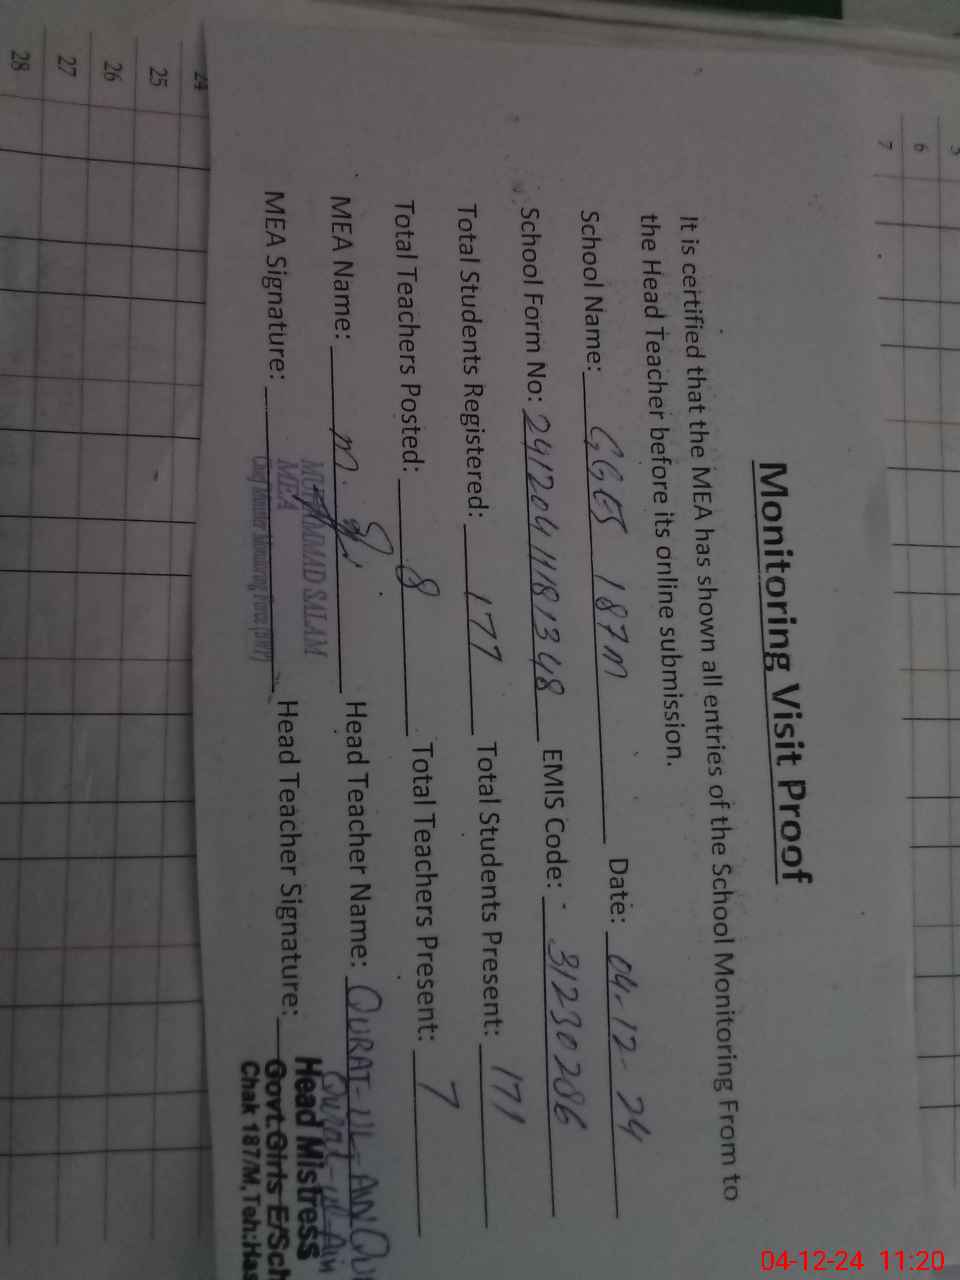 Monitoring Visit Proof
It is certified that the MEA has shown all entries of the School Monitoring From to
the Head Teacher before its online submission.
School Name: GGES 187M Date: 04-12-24
School Form No: 2412041181348 EMIS Code: 31230286
Total Students Registered: 177 Total Students Present: 171
Total Teachers Posted: 8 Total Teachers Present: 7
MEA Name: M. Head Teacher Name: QURAT-UL-AIN
MUHAMMAD SALAM
MEA
MEA Signature: Head Teacher Signature: Qurat-ul-Ain
Head Mistress
Govt.Girls E/Sch
Chak 187/M, Teh:Has
5
6
7
24
25
26
27
28
04-12-24 11:20